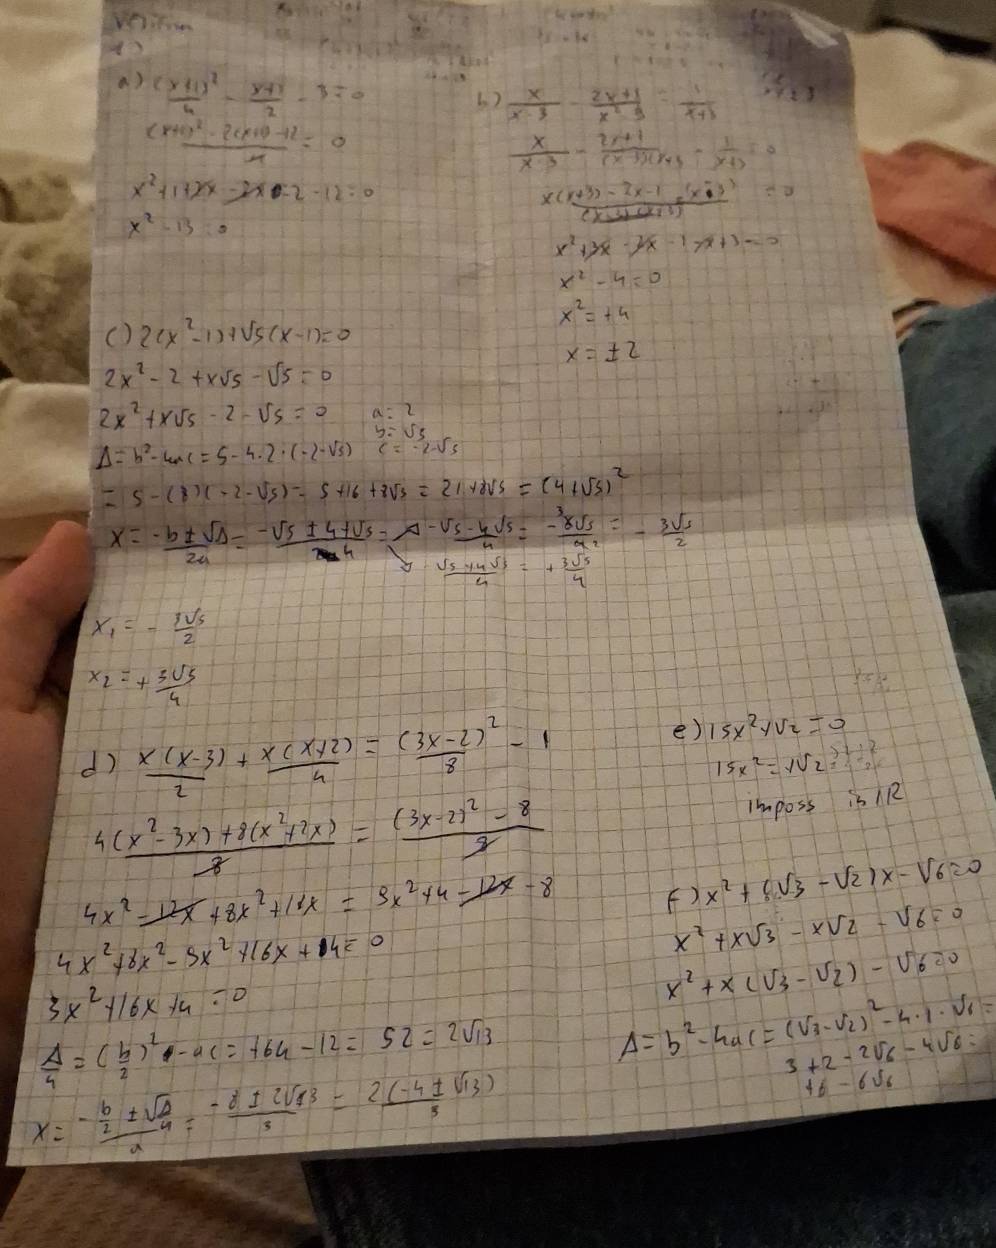 a) (x+1)²/4 - (x+1)/2 - 3 = 0
((x+1)² - 2(x+1) - 12)/4 = 0
x² + 1 + 2x - 2x - 2 - 12 = 0
x² - 13 = 0
b) x/(x-3) - (2x+1)/(x²-9) = 1/(x+3)
x/(x-3) - (2x+1)/((x-3)(x+3)) - 1/(x+3) = 0
(x(x+3) - 2x - 1 - (x-3))/((x-3)(x+3)) = 0
x² + 3x - 2x - 1 - x + 3 = 0
x² - 4 = 0
x² = +4
x = ±2
c) 2(x²-1) + √5(x-1) = 0
2x² - 2 + x√5 - √5 = 0
2x² + x√5 - 2 - √5 = 0
a = 2
b = √5
c = -2-√5
Δ = b² - 4ac = 5 - 4·2·(-2-√5)
= 5 - (8)(-2-√5) = 5 + 16 + 8√5 = 21 + 8√5 = (4+√5)²
x = (-b ± √Δ)/2a = (-√5 ± 4+√5)/4 = (-√5 - 4√5)/4 = -8√5/4 = - 3√5/2
(√5 + 4√5)/4 = + 3√5/4
x₁ = - 3√5/2
x₂ = + 3√5/4
d) x(x-3)/2 + x(x+2)/4 = (3x-2)²/8 - 1
(4(x²-3x) + 8(x²+2x))/8 = ((3x-2)² - 8)/8
4x² - 12x + 8x² + 16x = 9x² + 4 - 12x - 8
4x² + 8x² - 9x² + 16x + 4 = 0
3x² + 16x + 4 = 0
Δ/4 = (b/2)² - ac = +64 - 12 = 52 = 2√13
x = (-b/2 ± √Δ/4)/a = (-8 ± 2√13)/3 = 2(-4 ± √13)/3
e) 15x² + √2 = 0
15x² = +√2
imposs in IR
f) x² + (√3 - √2)x - √6 = 0
x² + x√3 - x√2 - √6 = 0
x² + x(√3 - √2) - √6 = 0
Δ = b² - 4ac = (√3-√2)² - 4·1·√6 =
3 + 2 - 2√6 - 4√6 =
+6 - 6√6